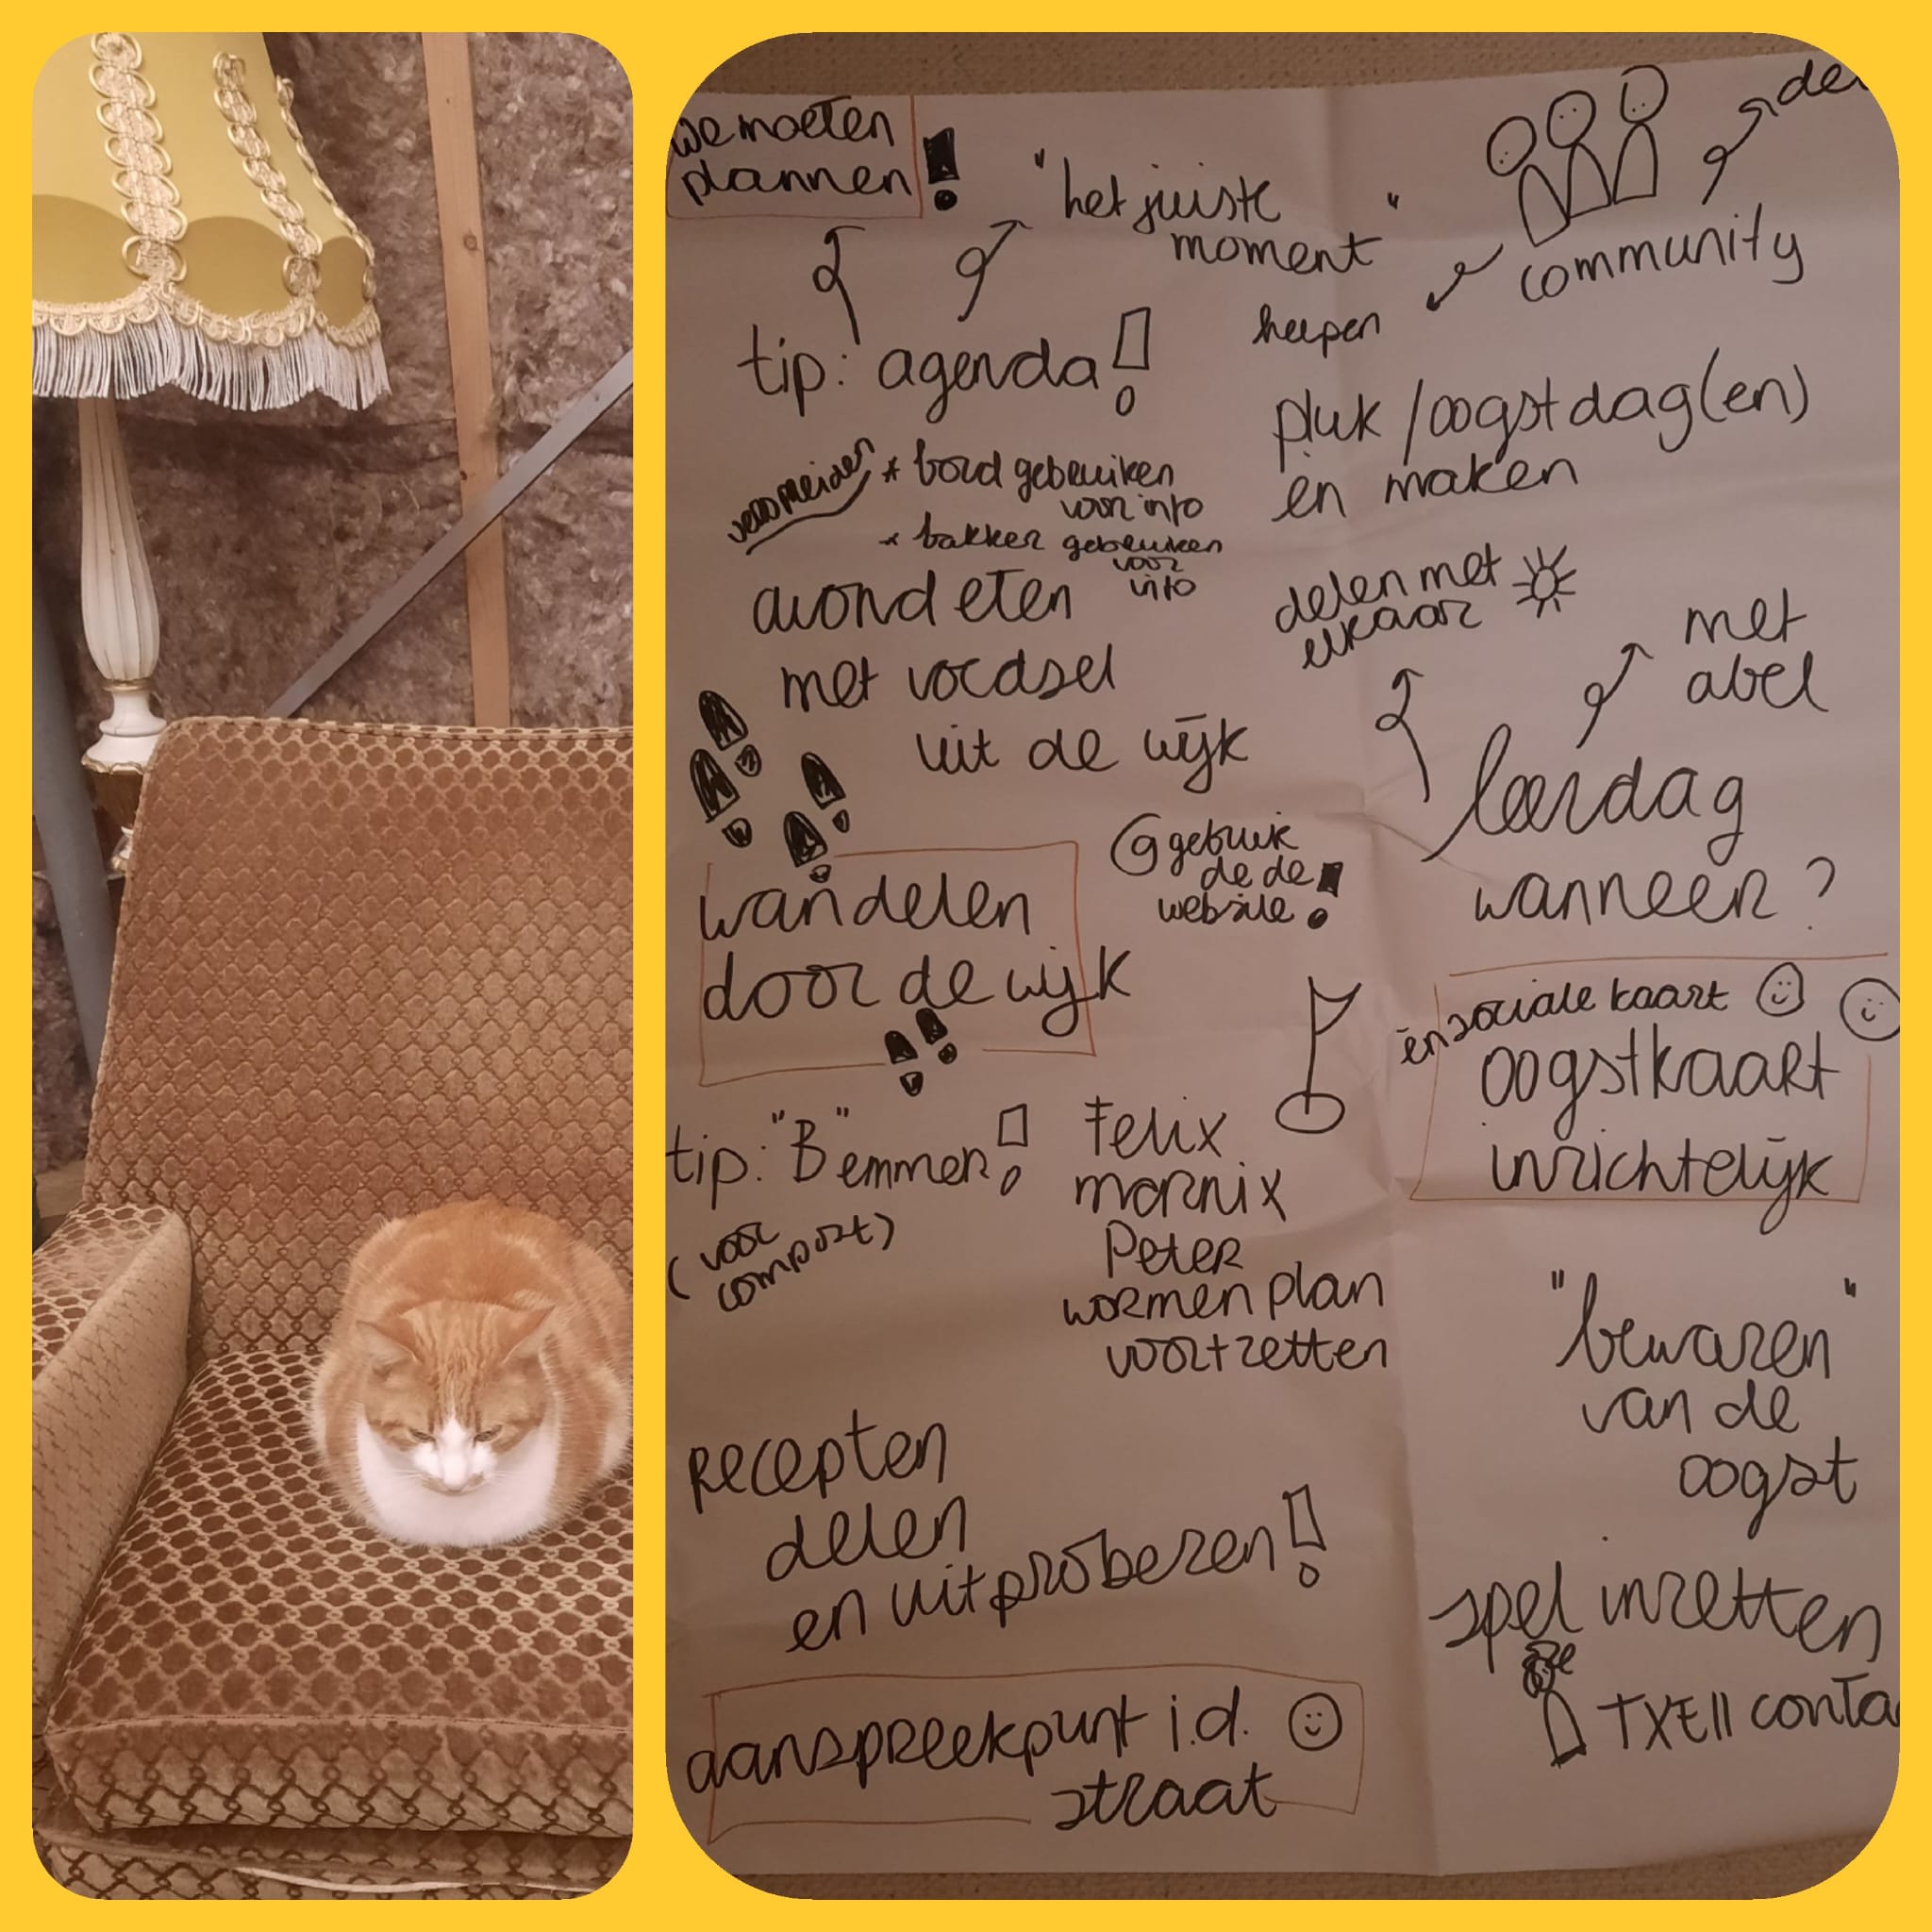 we moeten
plannen!
"het juiste
moment"
de
community
helpen
tip: agenda!
pluk / oogstdag(en)
èn maken
verspreiden
* bord gebruiken
voor info
* bakker gebruiken
voor
info
avondeten
met voedsel
uit de wijk
delen met
elkaar
met
abel
leerdag
wanneer?
@ gebruik
de de
website!
wandelen
door de wijk
èn sociale kaart
oogstkaart
inrichtelijk
tip: "B" emmer!
(voor
compost)
Felix
marnix
Peter
wormen plan
voortzetten
"bewaren"
van de
oogst
recepten
delen
en uitproberen!
spel inzetten
TXEll conta
aanspreekpunt i.d.
straat